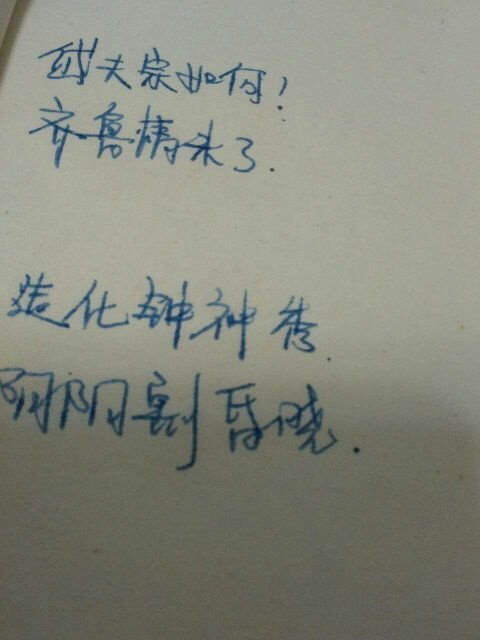 岱夫宗如何！
齐鲁情未了.
造化钟神秀.
阴阳割昏晓.